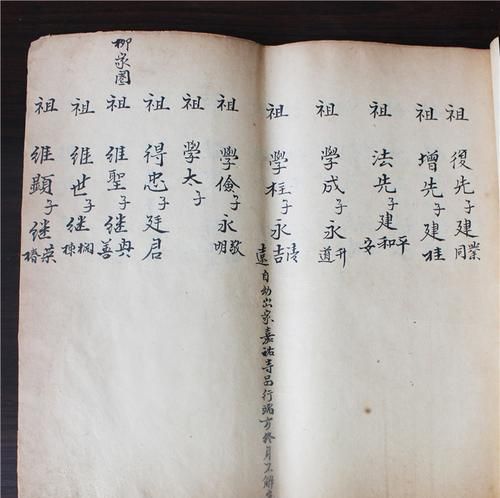 祖 復先子建業同
祖 增先子建桂
祖 法先子建平和安
祖 學成子永升道
祖 學柱子永清吉遠自幼出家嘉祐寺品行端方終
祖 學儉子永敬明
祖 學太子
祖 得忠子廷君
柳家園
祖 維聖子继典善
祖 維世子继棟
祖 維顯子继榮椿